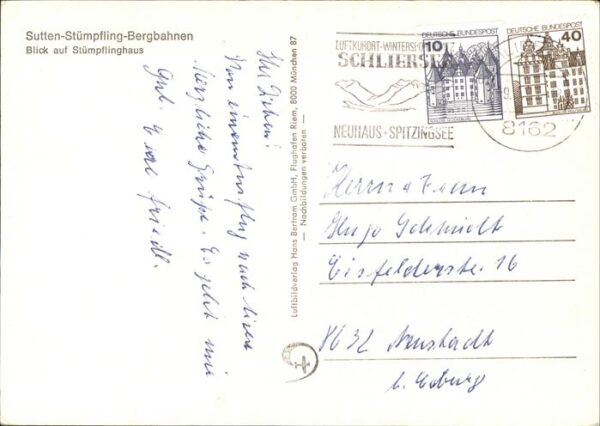 Sutten-Stümpfling-Bergbahnen
Blick auf Stümpflinghaus
Ihr Lieben!
Von einem Ausflug nach hier
herzliche Grüße. Es geht mir
gut. 
Luftbildverlag Hans Bertram GmbH, Flughafen Riem, 8000 München 87
— Nachbildungen verboten —
LUFTKURORT-WINTERSPO
SCHLIERSE
NEUHAUS + SPITZINGSEE
8162
DEUTSCHE BUNDESPOST
10
DEUTSCHE BUNDESPOST
40
Herrn u Frau
Hugo Schmidt
Eisfelderstr. 16
8632 Neustadt
b. Coburg